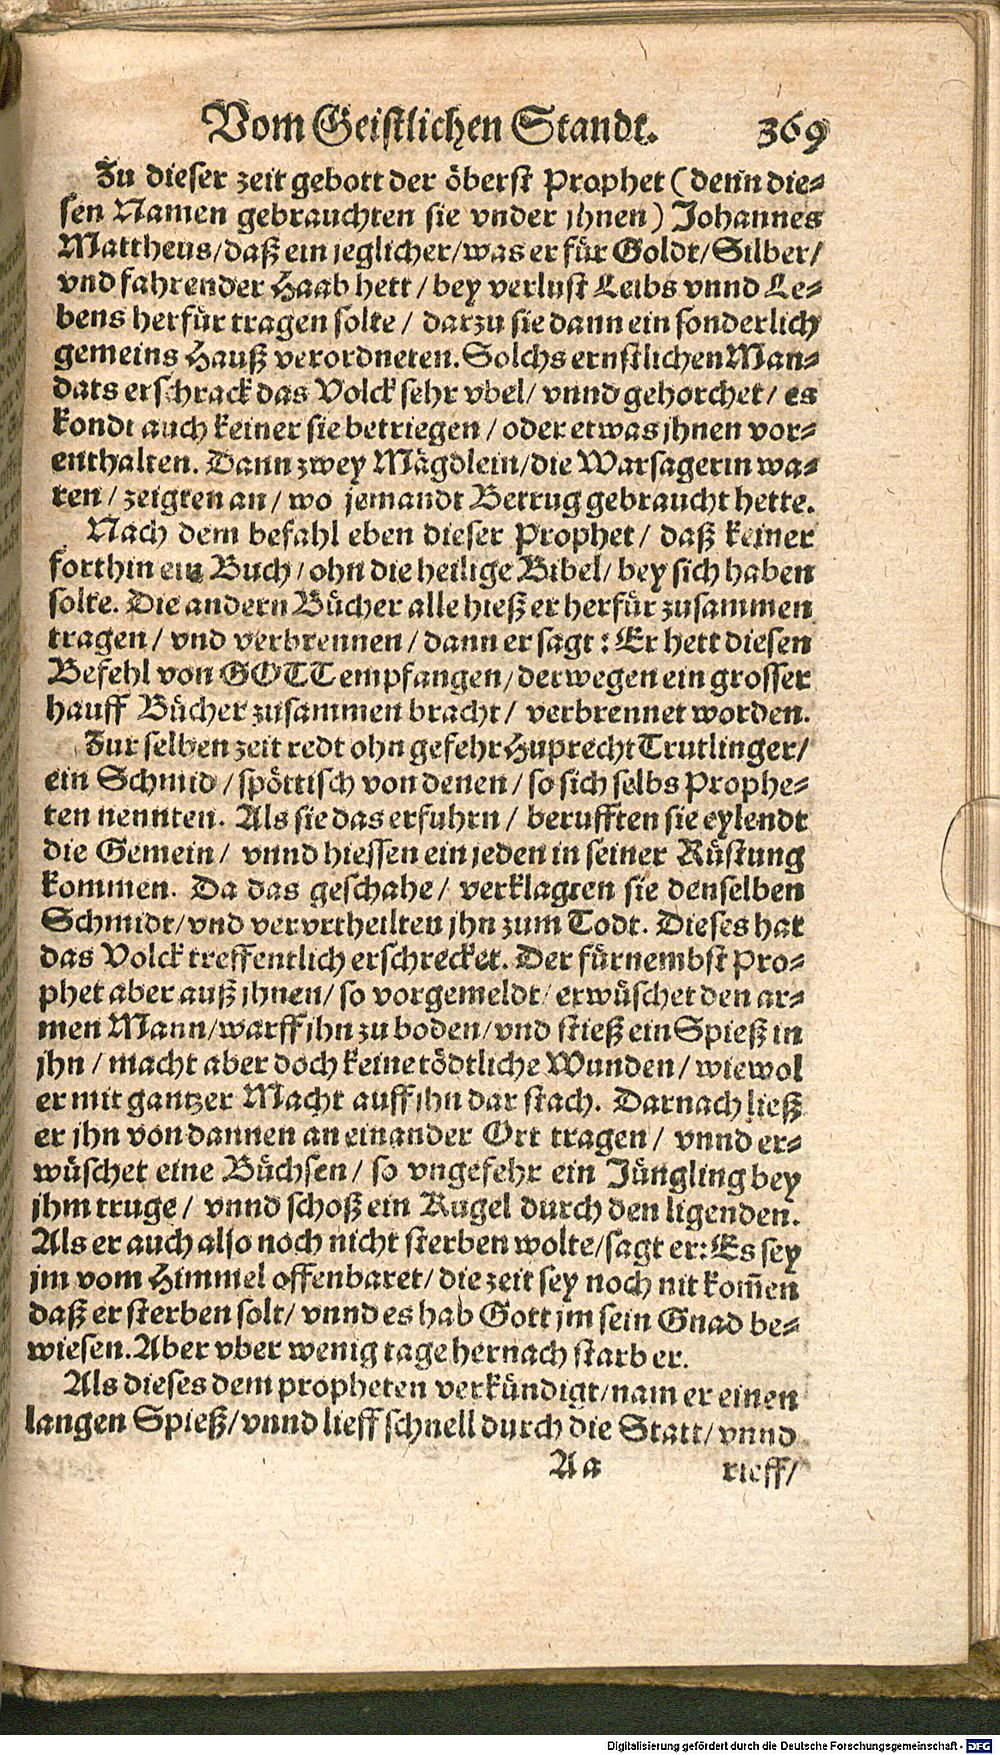 Vom Geistlichen Standt. 369
Zu dieser zeit gebott der öberst Prophet (denn die-
sen Namen gebrauchten sie vnder jhnen) Johannes
Mattheus/daß ein jeglicher/was er für Goldt/Silber/
vnd fahrender Haab hett/bey verlust Leibs vnnd Le-
bens herfür tragen solte/ darzu sie dann ein sonderlich
gemeins Hauß verordneten. Solchs ernstlichen Man-
dats erschrack das Volck sehr vbel/ vnnd gehorchet/ es
kondt auch keiner sie betriegen/oder etwas jhnen vor-
enthalten. Dann zwey Mägdlein/die Warsagerin wa-
ren/ zeigten an/ wo jemandt Betrug gebraucht hette.
Nach dem befahl eben dieser Prophet/ daß keiner
forthin ein Buch/ohn die heilige Bibel/bey sich haben
solte. Die andern Bücher alle hieß er herfür zusammen
tragen/ vnd verbrennen/dann er sagt: Er hett diesen
Befehl von GOTT empfangen/derwegen ein grosser
hauff Bücher zusammen bracht/ verbrennet worden.
Zur selben zeit redt ohn gefehr Huprecht Trutlinger/
ein Schmid/spöttisch von denen/so sich selbs Prophe-
ten nennten. Als sie das erfuhrn/ berufften sie eylendt
die Gemein/ vnnd hiessen ein jeden in seiner Rüstung
kommen. Da das geschahe/ verklagten sie denselben
Schmidt/vnd vervrtheilten jhn zum Todt. Dieses hat
das Volck treffentlich erschrecket. Der fürnembst Pro-
phet aber auß jhnen/so vorgemeldt/erwüschet den ar-
men Mann/warff jhn zu boden/vnd stieß ein Spieß in
jhn/macht aber doch keine tödtliche Wunden/wiewol
er mit gantzer Macht auff jhn dar stach. Darnach ließ
er jhn von dannen an ein ander Ort tragen/ vnnd er-
wüschet eine Büchsen/ so vngefehr ein Jüngling bey
jhm truge/ vnnd schoß ein Kugel durch den ligenden.
Als er auch also noch nicht sterben wolte/sagt er: Es sey
jm vom Himmel offenbaret/die zeit sey noch nit kom̃en
daß er sterben solt/ vnnd es hab Gott jm sein Gnad be-
wiesen. Aber vber wenig tage hernach starb er.
Als dieses dem propheten verkündigt/nam er einen
langen Spieß/vnnd lieff schnell durch die Statt/vnnd
Aa rieff/
Digitalisierung gefördert durch die Deutsche Forschungsgemeinschaft - DFG